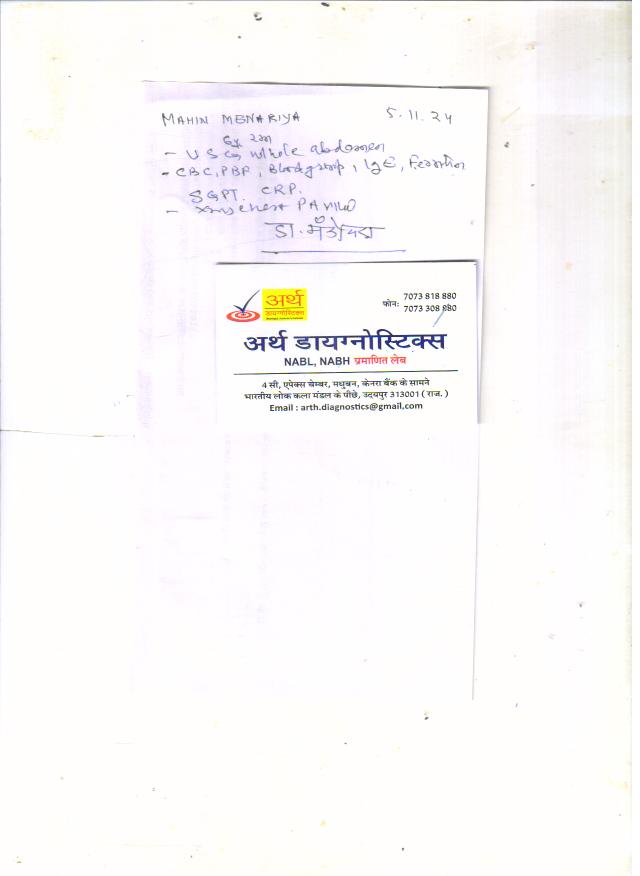 MAHIN MENARIYA 5.11.24
6y 2m
- USG whole abdomen
- CBC, PBF, Bloodgroup, IgE, Ferritin
SGPT. CRP.
- chest PA view
डा.
अर्थ
डायग्नोस्टिक्स
फोन: 7073 818 880
7073 308 880
अर्थ डायग्नोस्टिक्स
NABL, NABH प्रमाणित लेब
4 सी, एपेक्स चेम्बर, मधुबन, केनरा बैंक के सामने
भारतीय लोक कला मंडल के पीछे, उदयपुर 313001 ( राज. )
Email : arth.diagnostics@gmail,com